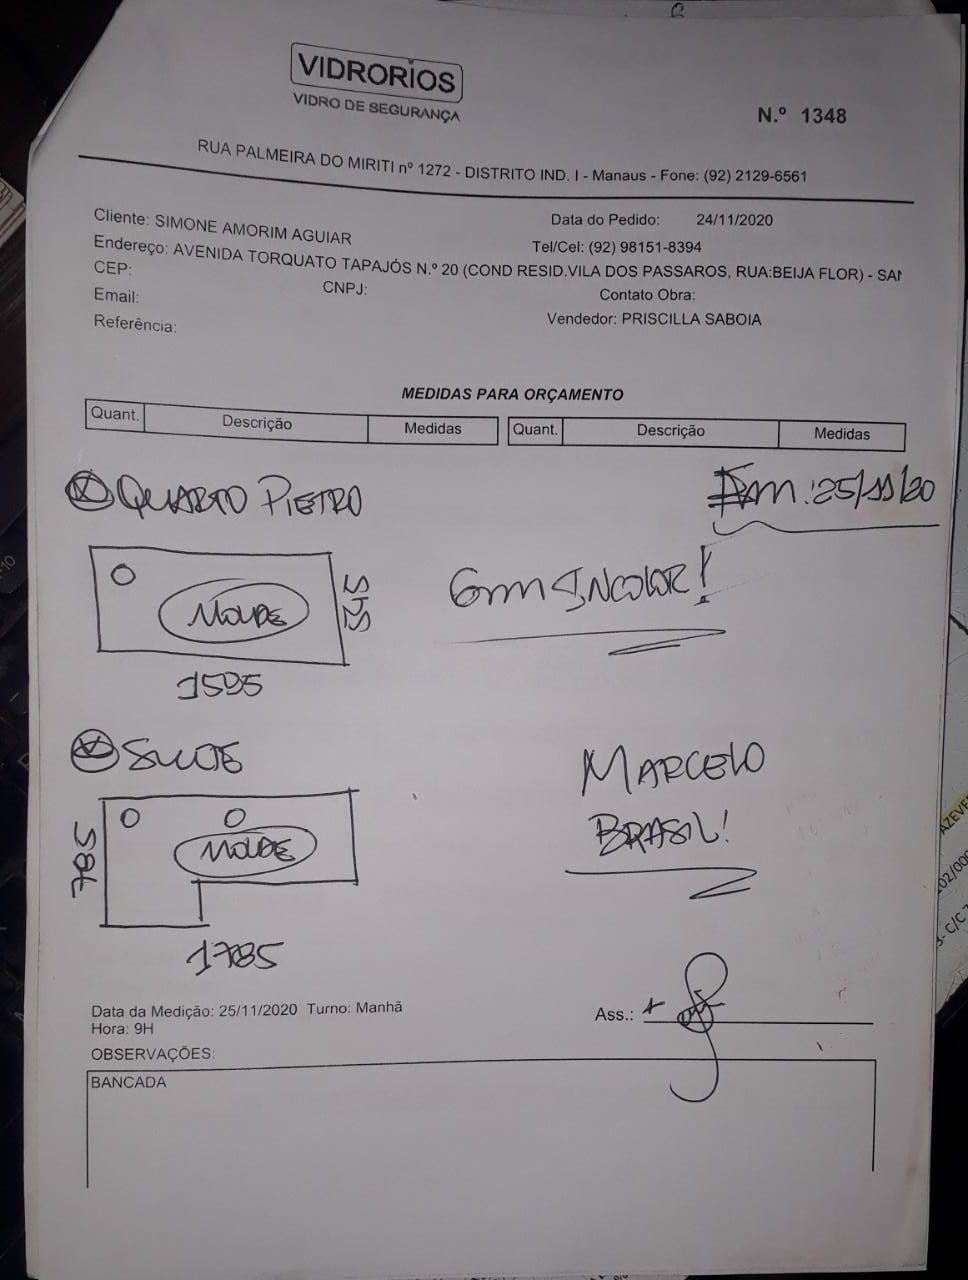 VIDRORIOS
VIDRO DE SEGURANÇA
N.º 1348
RUA PALMEIRA DO MIRITI nº 1272 - DISTRITO IND. I - Manaus - Fone: (92) 2129-6561
Cliente: SIMONE AMORIM AGUIAR
Data do Pedido: 24/11/2020
Endereço: AVENIDA TORQUATO TAPAJÓS N.º 20 (COND RESID.VILA DOS PASSAROS, RUA:BEIJA FLOR) - SAN
Tel/Cel: (92) 98151-8394
CEP:
CNPJ:
Contato Obra:
Email:
Vendedor: PRISCILLA SABOIA
Referência:
MEDIDAS PARA ORÇAMENTO
Quant. Descrição Medidas Quant. Descrição Medidas
QUARTO PIETRO
25/11/20
MOLDE
545
6mm INCOLOR!
1595
SUITE
MOLDE
MARCELO
BRASIL!
1785
Data da Medição: 25/11/2020 Turno: Manhã
Hora: 9H
Ass.:
OBSERVAÇÕES:
BANCADA